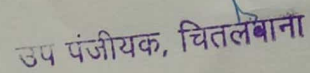 उप पंजीयक, चितलवाना